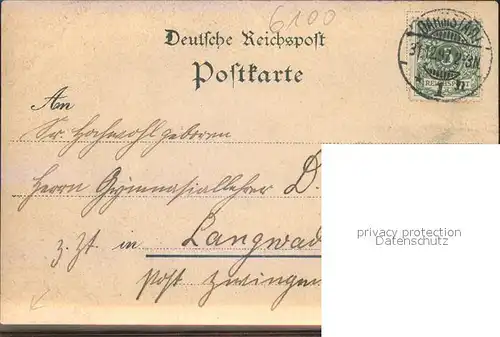 6100
Deutsche Reichspost
Postkarte
DARMSTADT
An
Sr. Hochwohlgeboren
Herrn Gymnasiallehrer D.
z. Zt. in Langwad
Post Zwingen
privacy protection
Datenschutz